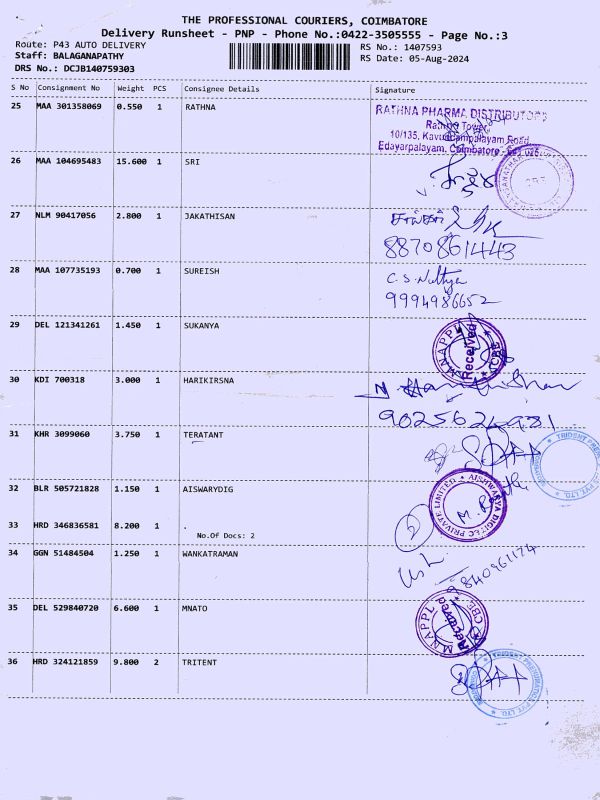 THE PROFESSIONAL COURIERS, COIMBATORE
Delivery Runsheet - PNP - Phone No.:0422-3505555 - Page No.:3
Route: P43 AUTO DELIVERY
RS No.: 1407593
Staff: BALAGANAPATHY
RS Date: 05-Aug-2024
DRS No.: DCJB140759303
S No Consignment No Weight PCS Consignee Details Signature
25 MAA 301358069 0.550 1 RATHNA
RATHNA PHARMA DISTRIBUTORS
Rathna Tower,
10/135, Kavundampalayam Road,
Edayarpalayam, Coimbatore
26 MAA 104695483 15.600 1 SRI
27 NLM 90417056 2.800 1 JAKATHISAN
8870861443
28 MAA 107735193 0.700 1 SUREISH
C.S. Nithya
9994986652
29 DEL 121341261 1.450 1 SUKANYA
MNAPPL CBE
Received
30 KDI 700318 3.000 1 HARIKIRSNA
31 KHR 3099060 3.750 1 TERATANT
32 BLR 505721828 1.150 1 AISWARYDIG
AISHWARYA DIGITEC PRIVATE LIMITED
33 HRD 346836581 8.200 1 .
No.Of Docs: 2
2
34 GGN 51484504 1.250 1 WANKATRAMAN
35 DEL 529840720 6.600 1 MNATO
MNAPPL CBE
Received
36 HRD 324121859 9.800 2 TRITENT
TRIDENT PNEUMATICS PVT. LTD.